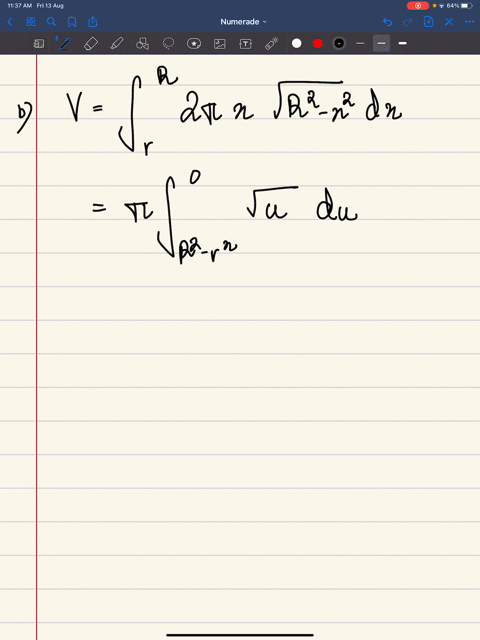 11:37 AM Fri 13 Aug 64%
Numerade
b) V = ∫_r^R 2π x √(R²-x²) dx
= π ∫_{R²-r^x}^0 √u du